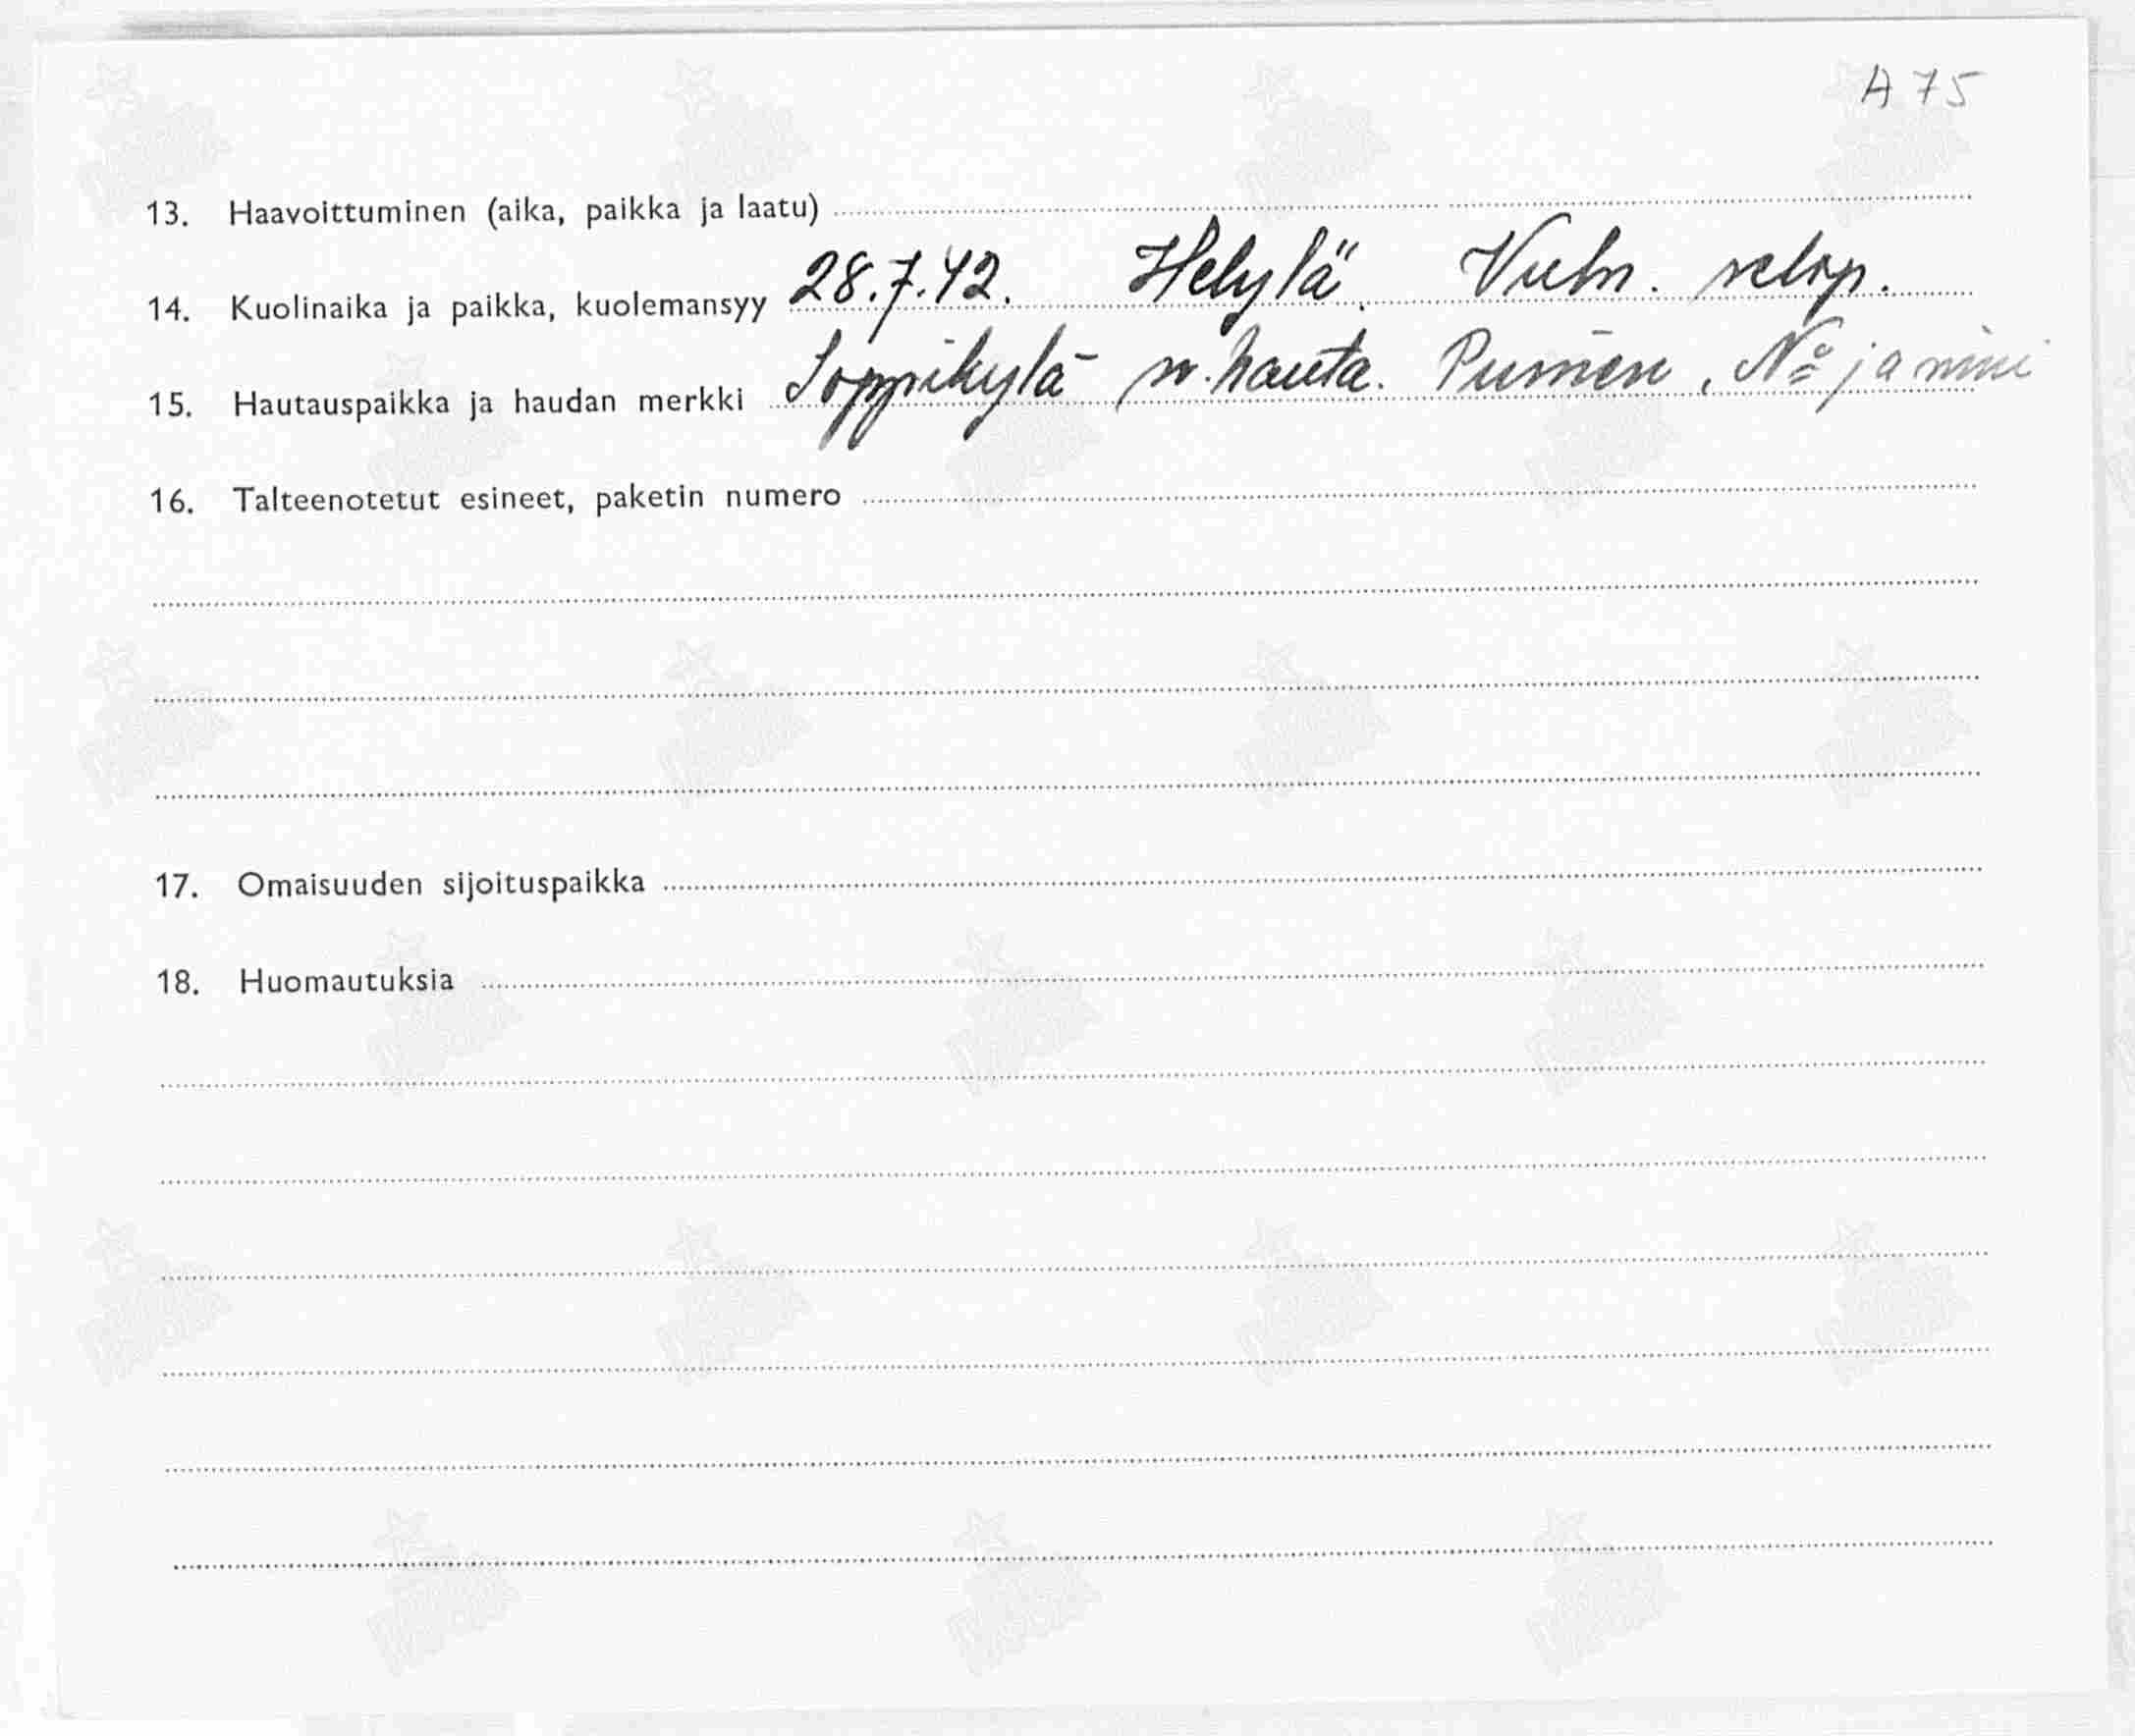 A 75
13. Haavoittuminen (aika, paikka ja laatu)
14. Kuolinaika ja paikka, kuolemansyy 28.7.42. Helylä.
15. Hautauspaikka ja haudan merkki Soppikylä hauta. Puinen, No ja nimi
16. Talteenotetut esineet, paketin numero
17. Omaisuuden sijoituspaikka
18. Huomautuksia